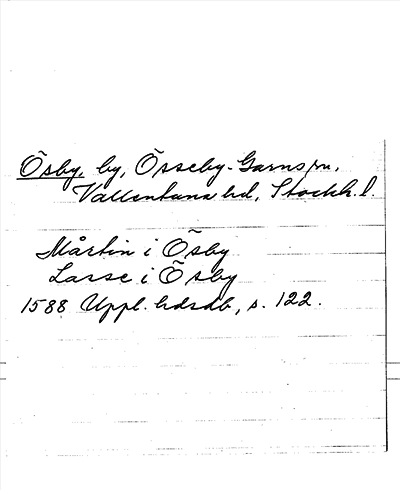 Ösby, by, Össeby-Garns sn,
Vallentuna hd, Stockh. l.
Mårten i Ösby
Lasse i Ösby
1588 Uppl. hdsdb, s. 122.